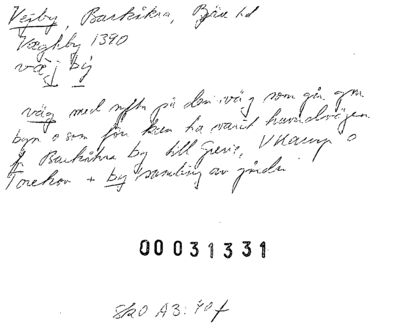 Vejby, Barkåkra, Bjäre hd
Væghby 1390
väj by
väg med syftn på den väg som går gnm
byn o som förr kan ha varit huvudvägen
fr Barkåkra by till Grevie, V Karup o
Torekov + by samling av gårdar
00031331
SkO A3: 40 f